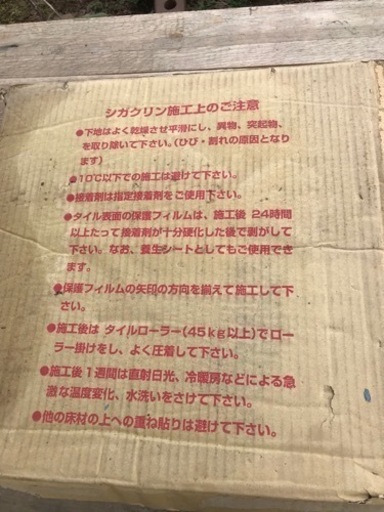 シガクリン施工上のご注意
●下地はよく乾燥させ平滑にし、異物、突起物、
を取り除いて下さい。(ひび・割れの原因となり
ます)
●10℃以下での施工は避けて下さい。
●接着剤は指定接着剤をご使用下さい。
●タイル表面の保護フィルムは、施工後 24時間
以上たって接着剤が十分硬化した後で剥がして
下さい。なお、養生シートとしてもご使用でき
ます。
●保護フィルムの矢印の方向を揃えて施工して下
さい。
●施工後は タイルローラー(45kg以上)でロー
ラー掛けをし、よく圧着して下さい。
●施工後1週間は直射日光、冷暖房などによる急
激な温度変化、水洗いをさけて下さい。
●他の床材の上への重ね貼りは避けて下さい。